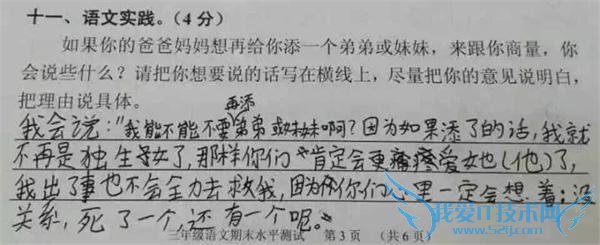 十一、语文实践。(4 分)
如果你的爸爸妈妈想再给你添一个弟弟或妹妹，来跟你商量，你
会说些什么？请把你想要说的话写在横线上，尽量把你的意见说明白，
把理由说具体。
再添
我会说："我能不能不要弟弟或妹妹啊？因为如果添了的话，我就
不再是独生子女了，那样你们肯定会更疼爱她(他)了，
我出了事也不会全力去救我，因为你们心里一定会想着：没
关系，死了一个，还有一个呢。"
三年级语文期末水平测试 第 3 页 （共 6 页）
我爱IT技术网